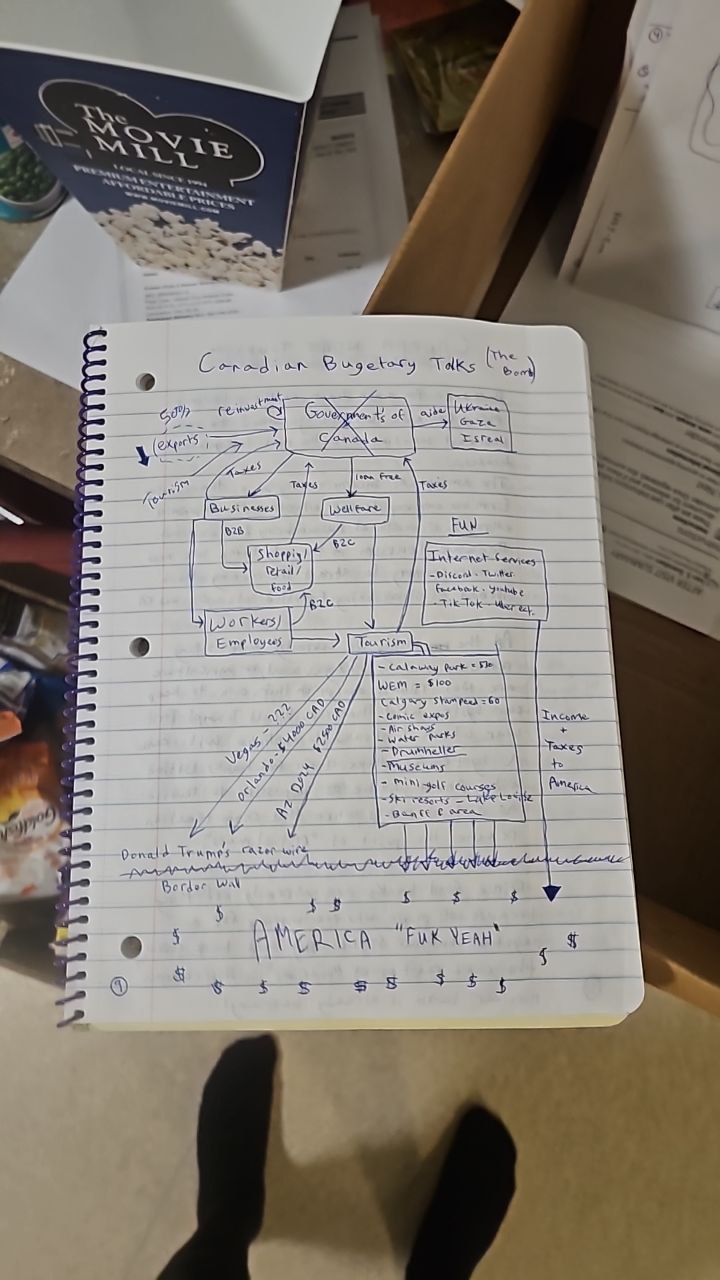 The
MOVIE
MILL
LOCAL SINCE 1994
PREMIUM ENTERTAINMENT
AFFORDABLE PRICES
WWW.MOVIEMILL.COM
Canadian Bugetary Talks (The Bomb)
50%
reinvestment
exports
Goverments of
Canada
aide
Ukraine
Gaza
Isreal
Tourism
Taxes
Taxes
loan free
Taxes
Businesses
Wellfare
B2B
B2C
Shoppig/
retail/
food
B2C
Workers/
Employees
Tourism
FUN
Internet Services
- Discord - Twitter
Facebook - Youtube
- TikTok - Uber ect.
- Calaway Park = $70
WEM = $100
Calgary Stampeed = 60
- Comic expos
- Air shows
- Water parks
- Drumheller
- Museums
- mini golf courses
- Ski resorts - Lake Louise
- Banff area
Vegas - ???
Orlando - $4000 CAD
AZ 2024 $2500 CAD
Income
+
Taxes
to
America
Donald Trump's razor wire
Border Wall
$ $ $ $ $ $ $
AMERICA "FUK YEAH"
$ $ $ $ $ $ $ $ $ $ $ $
9
Goldfish